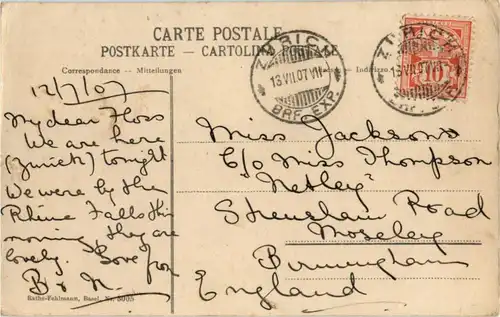 CARTE POSTALE
POSTKARTE — CARTOLINA POSTALE
Correspondance — Mitteilungen
Indirizzo
ZÜRICH
13.VII.07.VII
BRF.EXP.
ZÜRICH
13.VII.07.VII
BRF.EXP.
10
12/7/07
My dear Floss
We are here
(Zurich) tonight
We were by the
Rhine Falls this
morning, they are
lovely. Love from
B & N.
Miss Jackson
c/o Miss Thompson
"Netley"
Strensham Road
Moseley
Birmingham
England
Rathe-Fehlmann, Basel, Nr. 8005